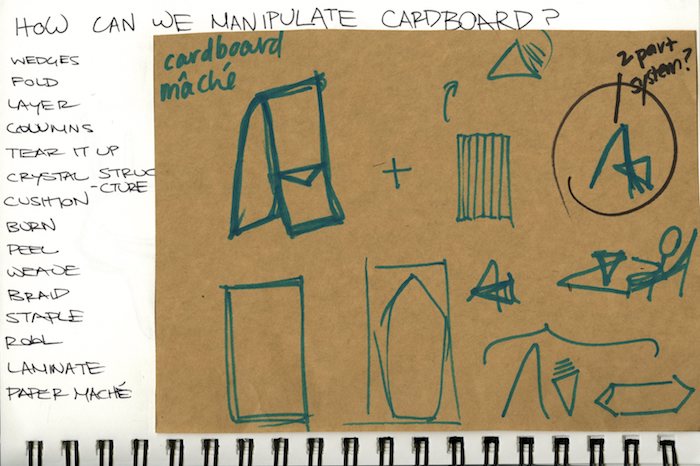 HOW CAN WE MANIPULATE CARDBOARD?
WEDGES
FOLD
LAYER
COLUMNS
TEAR IT UP
CRYSTAL STRUC
-CTURE
CUSHION
BURN
PEEL
WEAVE
BRAID
STAPLE
ROLL
LAMINATE
PAPER MACHÉ
cardboard
mâché
2 part
system?